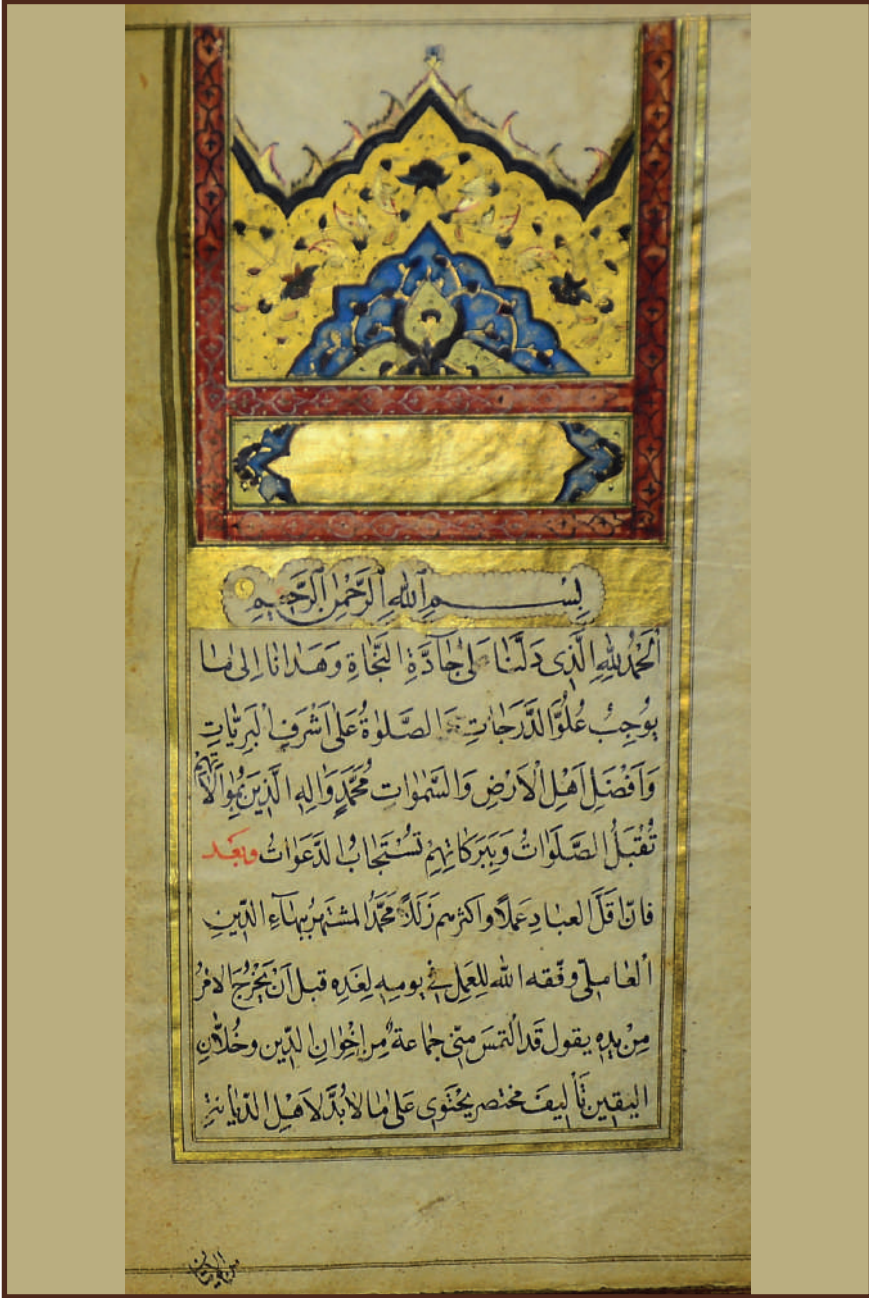 بِسْمِ ٱللهِ ٱلرَّحْمٰنِ ٱلرَّحِيمِ
اَلْحَمْدُ لِلّٰهِ الَّذِی دَلَّنَا عَلیٰ جَآدَّةِ النَّجَاةِ وَهَدَانَا اِلیٰ مَا
يُوجِبُ عُلُوَّ الدَّرَجَاتِ وَ الصَّلوٰةُ عَلیٰ اَشْرَفِ الْبَرِيَّاتِ
وَاَفْضَلِ اَهْلِ الْاَرْضِ وَالسَّمٰوَاتِ مُحَمَّدٍ وَاٰلِهِ الَّذِينَ بِمُوالَاتِهِمْ
تُقْبَلُ الصَّلَوَاتُ وَبِبَرَكَاتِهِمْ تُسْتَجَابُ الدَّعَوَاتُ وبَعَد
فاِنّ اَقَلَّ العبادِ عَمَلًا واَكثرهم زَلَلًا مُحَمَّدُ المشتهرُ ببهَآءِ الدّينِ
اَلعاملیّ وفّقه الله لِلعَمِلِ فی يومِهِ لِغَدِهِ قبل اَنْ يَخْرُجَ الامْرُ
مِنْ يدِهِ يقول قَد الْتمسَ منّی جَماعةٌ مِن اِخْوانِ الدّين وخُلّانِ
اليقين تَأليفَ مختصرٍ يَحْتَوِی عَلیٰ مَا لَا بُدَّ لِاَهْلِ الدّيانةِ